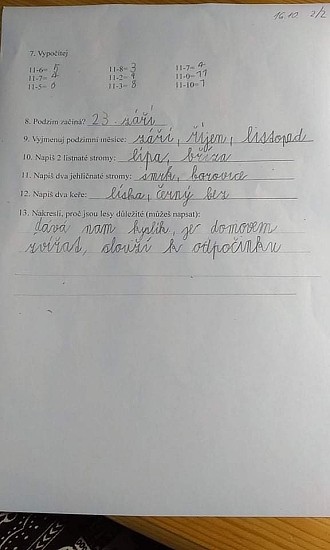 16.12. 2/2
7. Vypočítej
11-6= 5 11-8= 3 11-7= 4
11-7= 4 11-2= 9 11-0= 11
11-5= 6 11-3= 8 11-10= 1
8. Podzim začíná? 23 září
9. Vyjmenuj podzimní měsíce: září, říjen, listopad
10. Napiš 2 listnaté stromy: lípa, bříza
11. Napiš dva jehličnaté stromy: smrk, borovice
12. Napiš dva keře: líska, černý bez
13. Nakresli, proč jsou lesy důležité (můžeš napsat):
dává nam kyslík, je domovem
zvířat, slouží k odpočinku